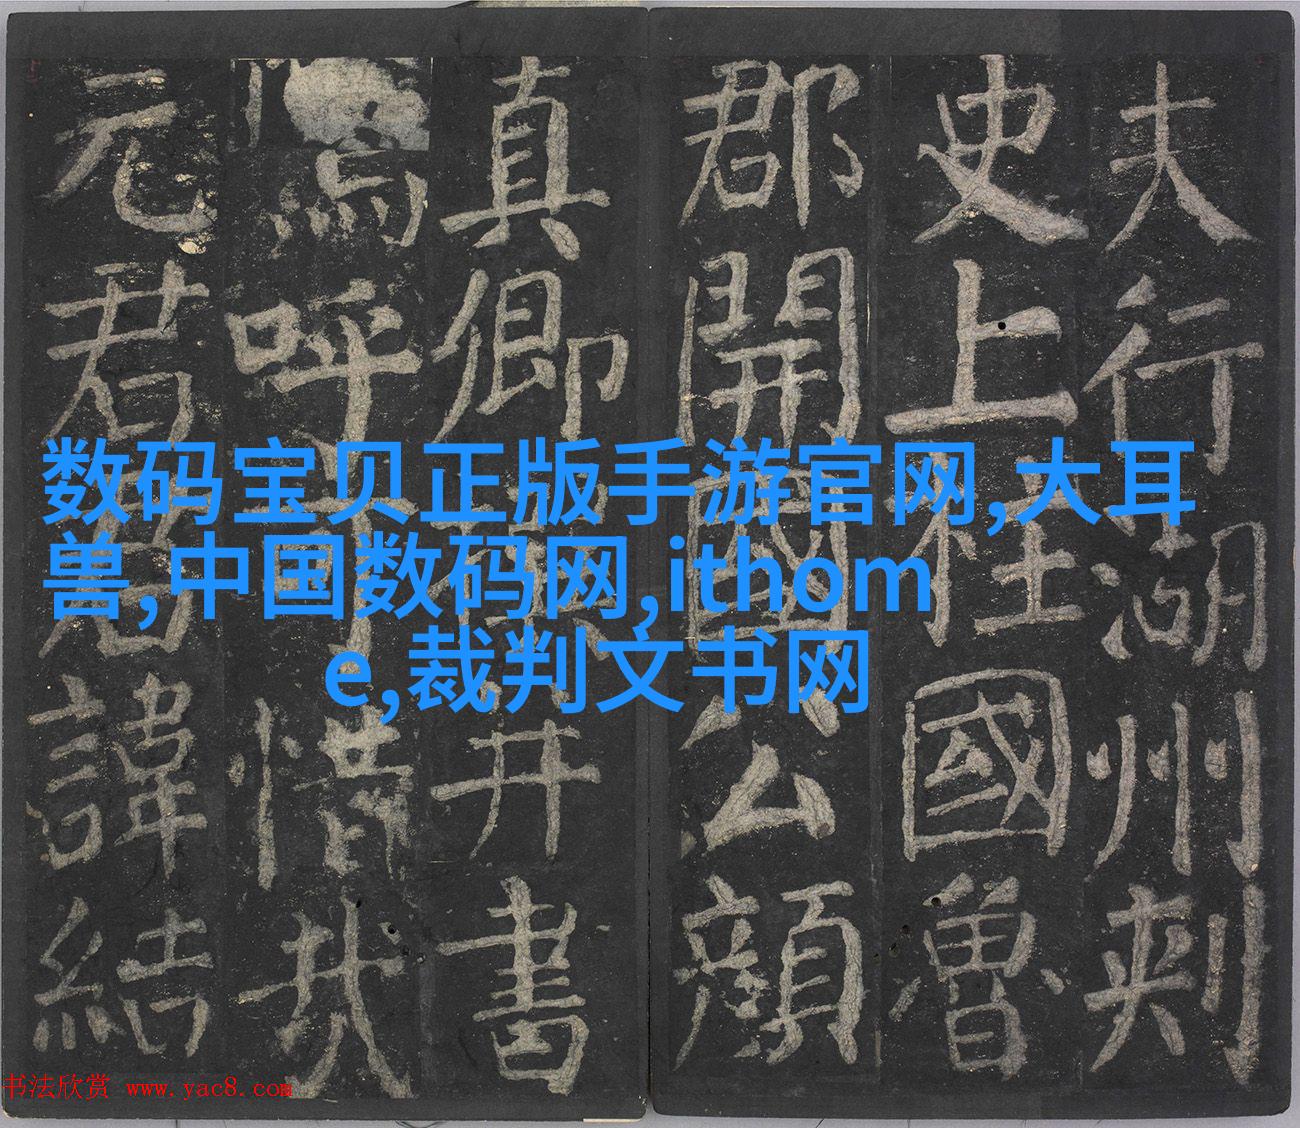 夫行湖州刺
史上柱國魯
郡開國公顏
真卿撰并書
嗚呼可惜哉
元君君諱結
数码宝贝正版手游官网,大耳
兽,中国数码网,ithom
e,裁判文书网
书法欣赏 www.yac8.com